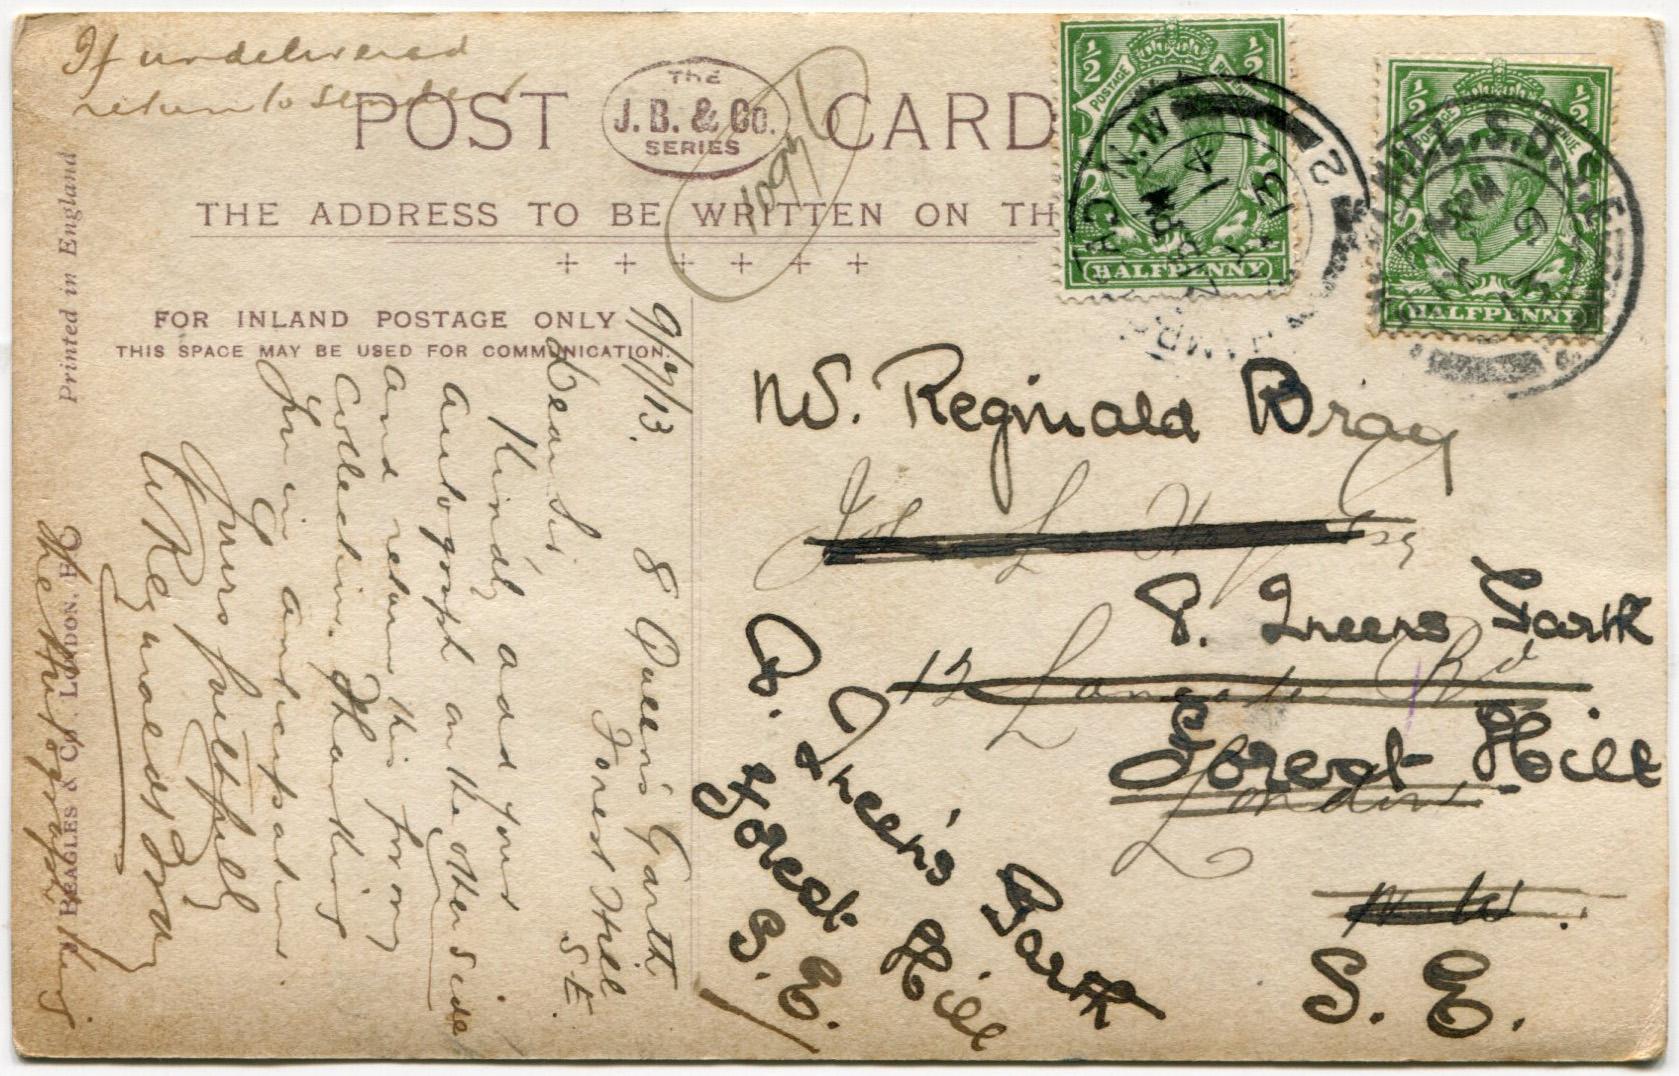 If undelivered
return to sender
POST CARD
THE
J.B. & Co.
SERIES
THE ADDRESS TO BE WRITTEN ON TH
FOR INLAND POSTAGE ONLY
THIS SPACE MAY BE USED FOR COMMUNICATION.
Printed in England
BEAGLES & Co. LONDON, E.C.
9/7/13.
8 Queens Garth
Forest Hill
S.E.
Dear Sir
Kindly add your
autograph on the other side
and return this for my
collection. Thanking
you in anticipation
Yours faithfully
W Reginald Bray
½ ½
POSTAGE REVENUE
HALFPENNY
½ ½
POSTAGE REVENUE
HALFPENNY
W. Reginald Bray
8. Queens Garth
12 Rd
Forest Hill
London
S. E.
8. Queen's Garth
Forest Hill
S. E.